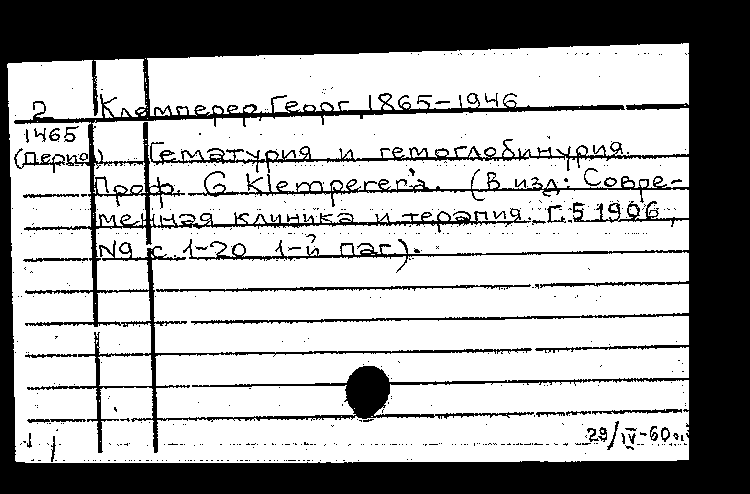 2 Клемперер, Георг, 1865-1946.
1465
(Период) Гематурия и гемоглобинурия.
Проф. G Klemperer'a. (В изд: Совре-
менная клиника и терапия. Г.5 1906,
N9 с. 1-20 1-й паг).
29/IV-60